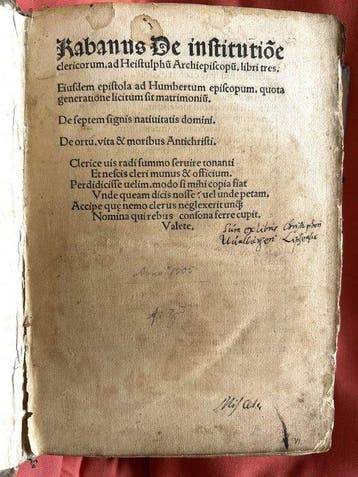 Rabanus De institutiõe
clericorum.ad Heistulphũ Archiepiscopũ.libri tres.
Eiusdem epistola ad Humbertum episcopum.quota
generatione licitum sit matrimoniũ.
De septem signis natiuitatis domini.
De ortu.vita & moribus Antichristi.
Clerice uis radi summo seruire tonanti
Et nescis cleri munus & officium.
Perdidicisse uelim.modo si mihi copia fiat
Vnde queam dicis nosse: uel unde petam.
Accipe quę nemo clerus neglexerit unq̃
Nomina qui rebus consona ferre cupit.
Valete.
Sum ex libris Christophori
Anno 1505